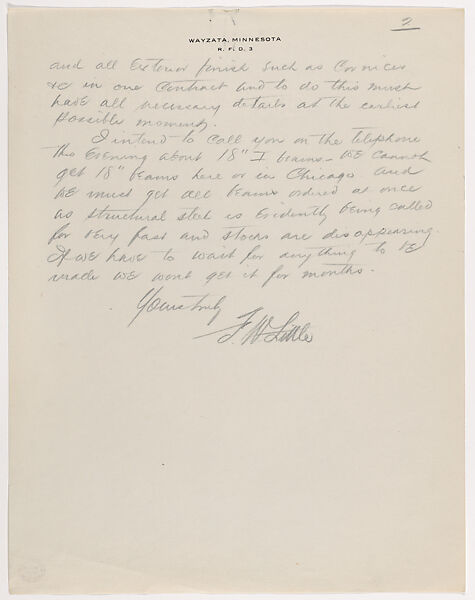 2
WAYZATA, MINNESOTA
R. F. D. 3
and all Exterior finish such as Cornices
&c in one Contract and to do this must
have all necessary details at the earliest
possible moment.
I intend to call you on the telephone
this Evening about 18" I beams. We cannot
get 18" beams here or in Chicago and
we must get all beams ordered at once
as structural steel is Evidently being called
for very fast and stocks are disappearing.
If we have to wait for anything to be
made we wont get it for months.
Yours truly
F. W Little